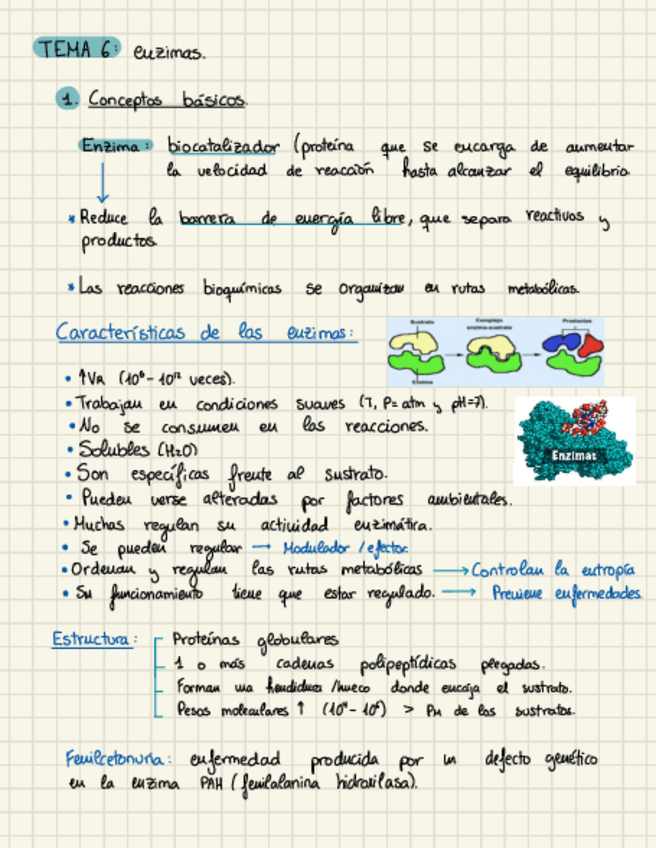 TEMA 6: enzimas.
1. Conceptos básicos.
Enzima: biocatalizador (proteína que se encarga de aumentar
la velocidad de reacción hasta alcanzar el equilibrio.
* Reduce la barrera de energía libre, que separa reactivos y
productos.
* Las reacciones bioquímicas se organizan en rutas metabólicas.
Características de las enzimas:
Sustrato Complejo enzima-sustrato Productos
Enzima
• ↑VR (10⁶ - 10¹² veces).
• Trabajan en condiciones suaves (T, P= atm y pH=7).
• No se consumen en las reacciones.
• Solubles (H₂O)
Enzimas
• Son específicas frente al sustrato.
• Pueden verse alteradas por factores ambientales.
• Muchas regulan su actividad enzimática.
• Se pueden regular → Modulador / efector.
• Ordenan y regulan las rutas metabólicas → Controlan la entropía
• Su funcionamiento tiene que estar regulado. → Previene enfermedades.
Estructura: Proteínas globulares
1 o más cadenas polipeptídicas plegadas.
Forman una hendidura /hueco donde encaja el sustrato.
Pesos moleculares ↑ (10⁴ - 10⁶) > PM de los sustratos.
Fenilcetonuria: enfermedad producida por un defecto genético
en la enzima PAH (fenilalanina hidroxilasa).